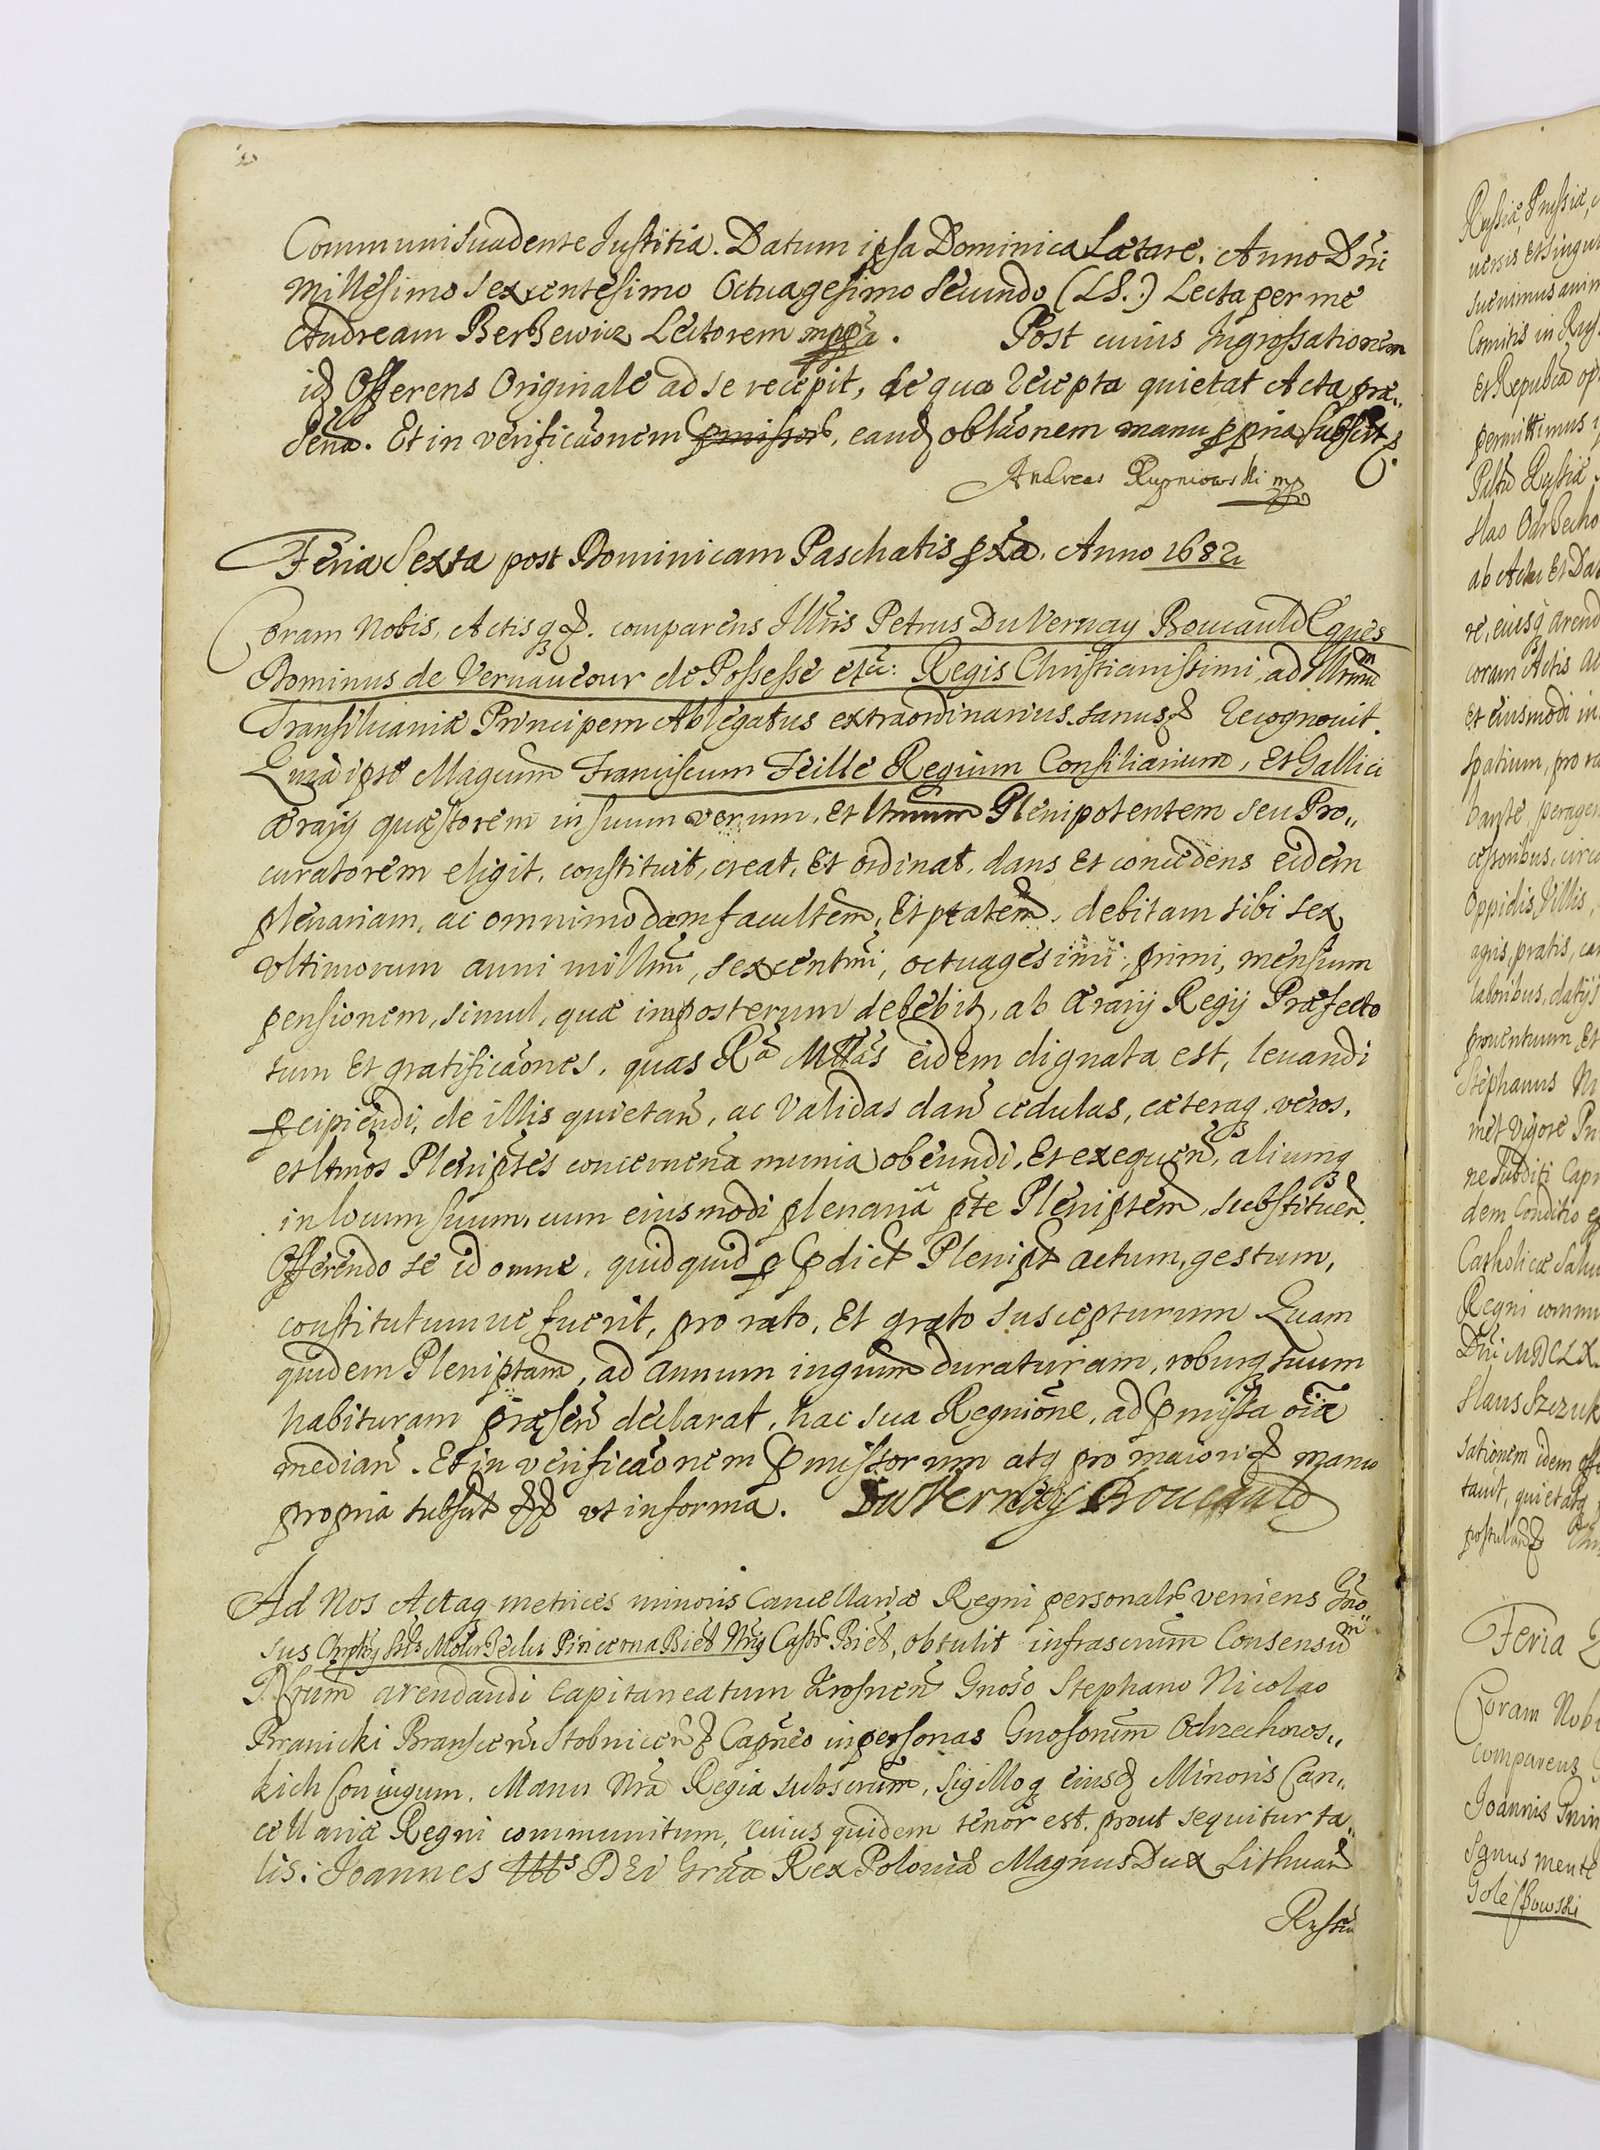 Communi suadente Justitia. Datum ipsa Dominica Laetare. Anno Dñi
Millesimo Sexcentesimo Octuagesimo Secundo (LS.) Lecta per me
Andream Berzewicz Lectorem mppa. Post cuius Ingrossationem
idem Offerens Originale ad se recepit, de quo recepto quietat Acta prae„
sena. Et in verificaonem pmissor, eand oblaonem manu ppria subscrt
Andreas Rupniowski mp
Feria Sexta post Dominicam Paschatis pxa. Anno 1682
Coram Nobis, Actisq. comparens Illris Petrus DuVernay Boucauld Eques
Dominus de Vernaucour de Possesse etc: Regis Christianissimi, ad Illrmum
Transilvaniae Principem Ablegatus extraordinarius. sanus recognovit.
Quia ipse Magcum Franciscum Feille Regium Consiliarium, et Gallici
aerarij quaestorem in suum verum, et ltmum Plenipotentem seu Pro„
curatorem eligit, constituit, creat, et ordinat, dans et concedens eidem
plenariam, ac omnimodam facultem, et ptatem, debitam sibi sex
ultimorum anni millmi, sexcentmi, octuagesimi, primi, mensium
pensionem, simul, quae imposterum debebit, ab aerarij Regij Praefecto
tum et gratificaones, quas Ra Mttas eidem dignata est, levandi
pcipiendi, de illis quietan, ac validas dan cedulas, caeteraq veros,
et ltmos Plenipttes concernena munia obeundi, et exequen, aliumq
in locum suum, cum eiusmodi plenaria pte Pleniptem, substituen.
Offerendo se id omne, quidquid p pdict Plenipt actum, gestum,
constitutumve fuerit, pro rato, et grato suscepturum Quam
quidem Pleniptam, ad annum integrum duraturam, roburq suum
habituram praesen declarat, hac sua Regnione, ad pmissa oia
median. Et in verificaonem pmissorum atq pro maiori manu
propria subscrt ut in forma. DuVernay Boucauld
Ad Nos Actaq metrices minoris Cancellariae Regni personalr veniens Gno„
sus Pincerna Biec Nrij Castr Biec, obtulit infrascrum Consensum
Nrum arendandi Capitaneatum Krosnen Gnoso Stephano Nicolao
Branicki Branscen Stobnicen Capneo in personas Gnosorum Odrzechows„
kich Coniugum. Manu Nra Regia subscrum, Sigilloq eiusd Minoris Can„
cellariae Regni communitum, cuius quidem tenor est. prout sequitur ta„
lis: Joannes IIItus DEI Graa Rex Poloniae Magnus Dux Lithuan
Russiae
Russiae, Prussiae,
Comitis in
permittimus
Paltu Russiae
ab Actu et Dat
re, eiusq arend
coram Actis
et eiusmodi in
spatium, pro ra
cessoribus, circa
Oppidis, Villis,
agris, pratis,
laboribus, datijs
proventuum et
Stephanus Ni
met vigore
ne Subditi Capi
dem Conditio
Catholicae Salv
Regni commu
Dñi MDCLX
slaus Szczuk
sationem idem offe
tavit, quietatq
Feria
Coram Nobi
comparens
Joannis
Sanus mente
Golechowski